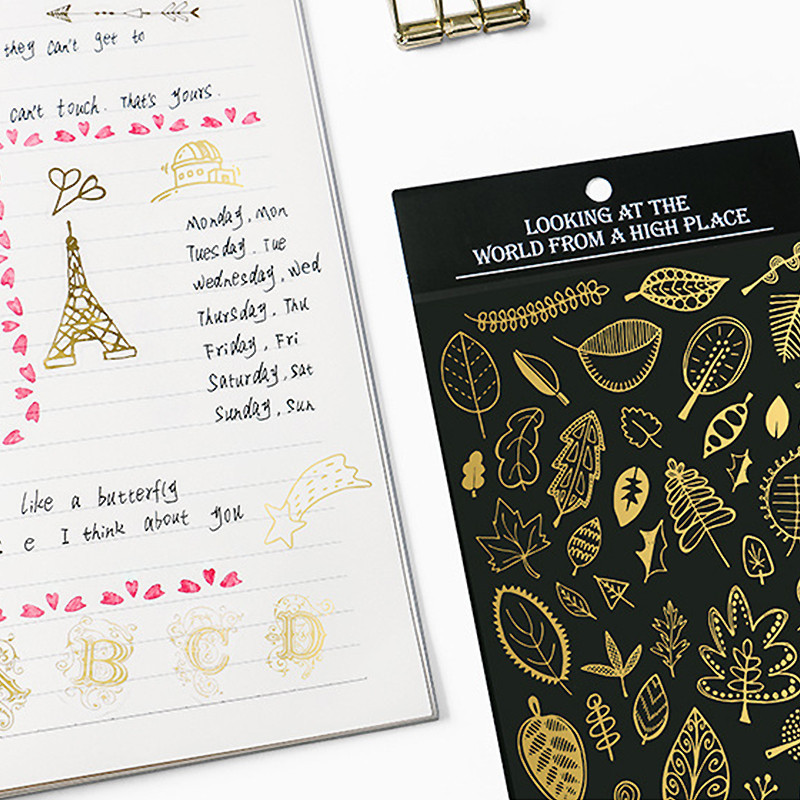 they can't get to
can't touch. That's yours.
Monday, Mon
Tuesday. Tue
Wednesday, Wed
Thursday, Thu
Friday, Fri
Saturday, Sat
Sunday, Sun
like a butterfly
e I think about you
A B C D
LOOKING AT THE
WORLD FROM A HIGH PLACE